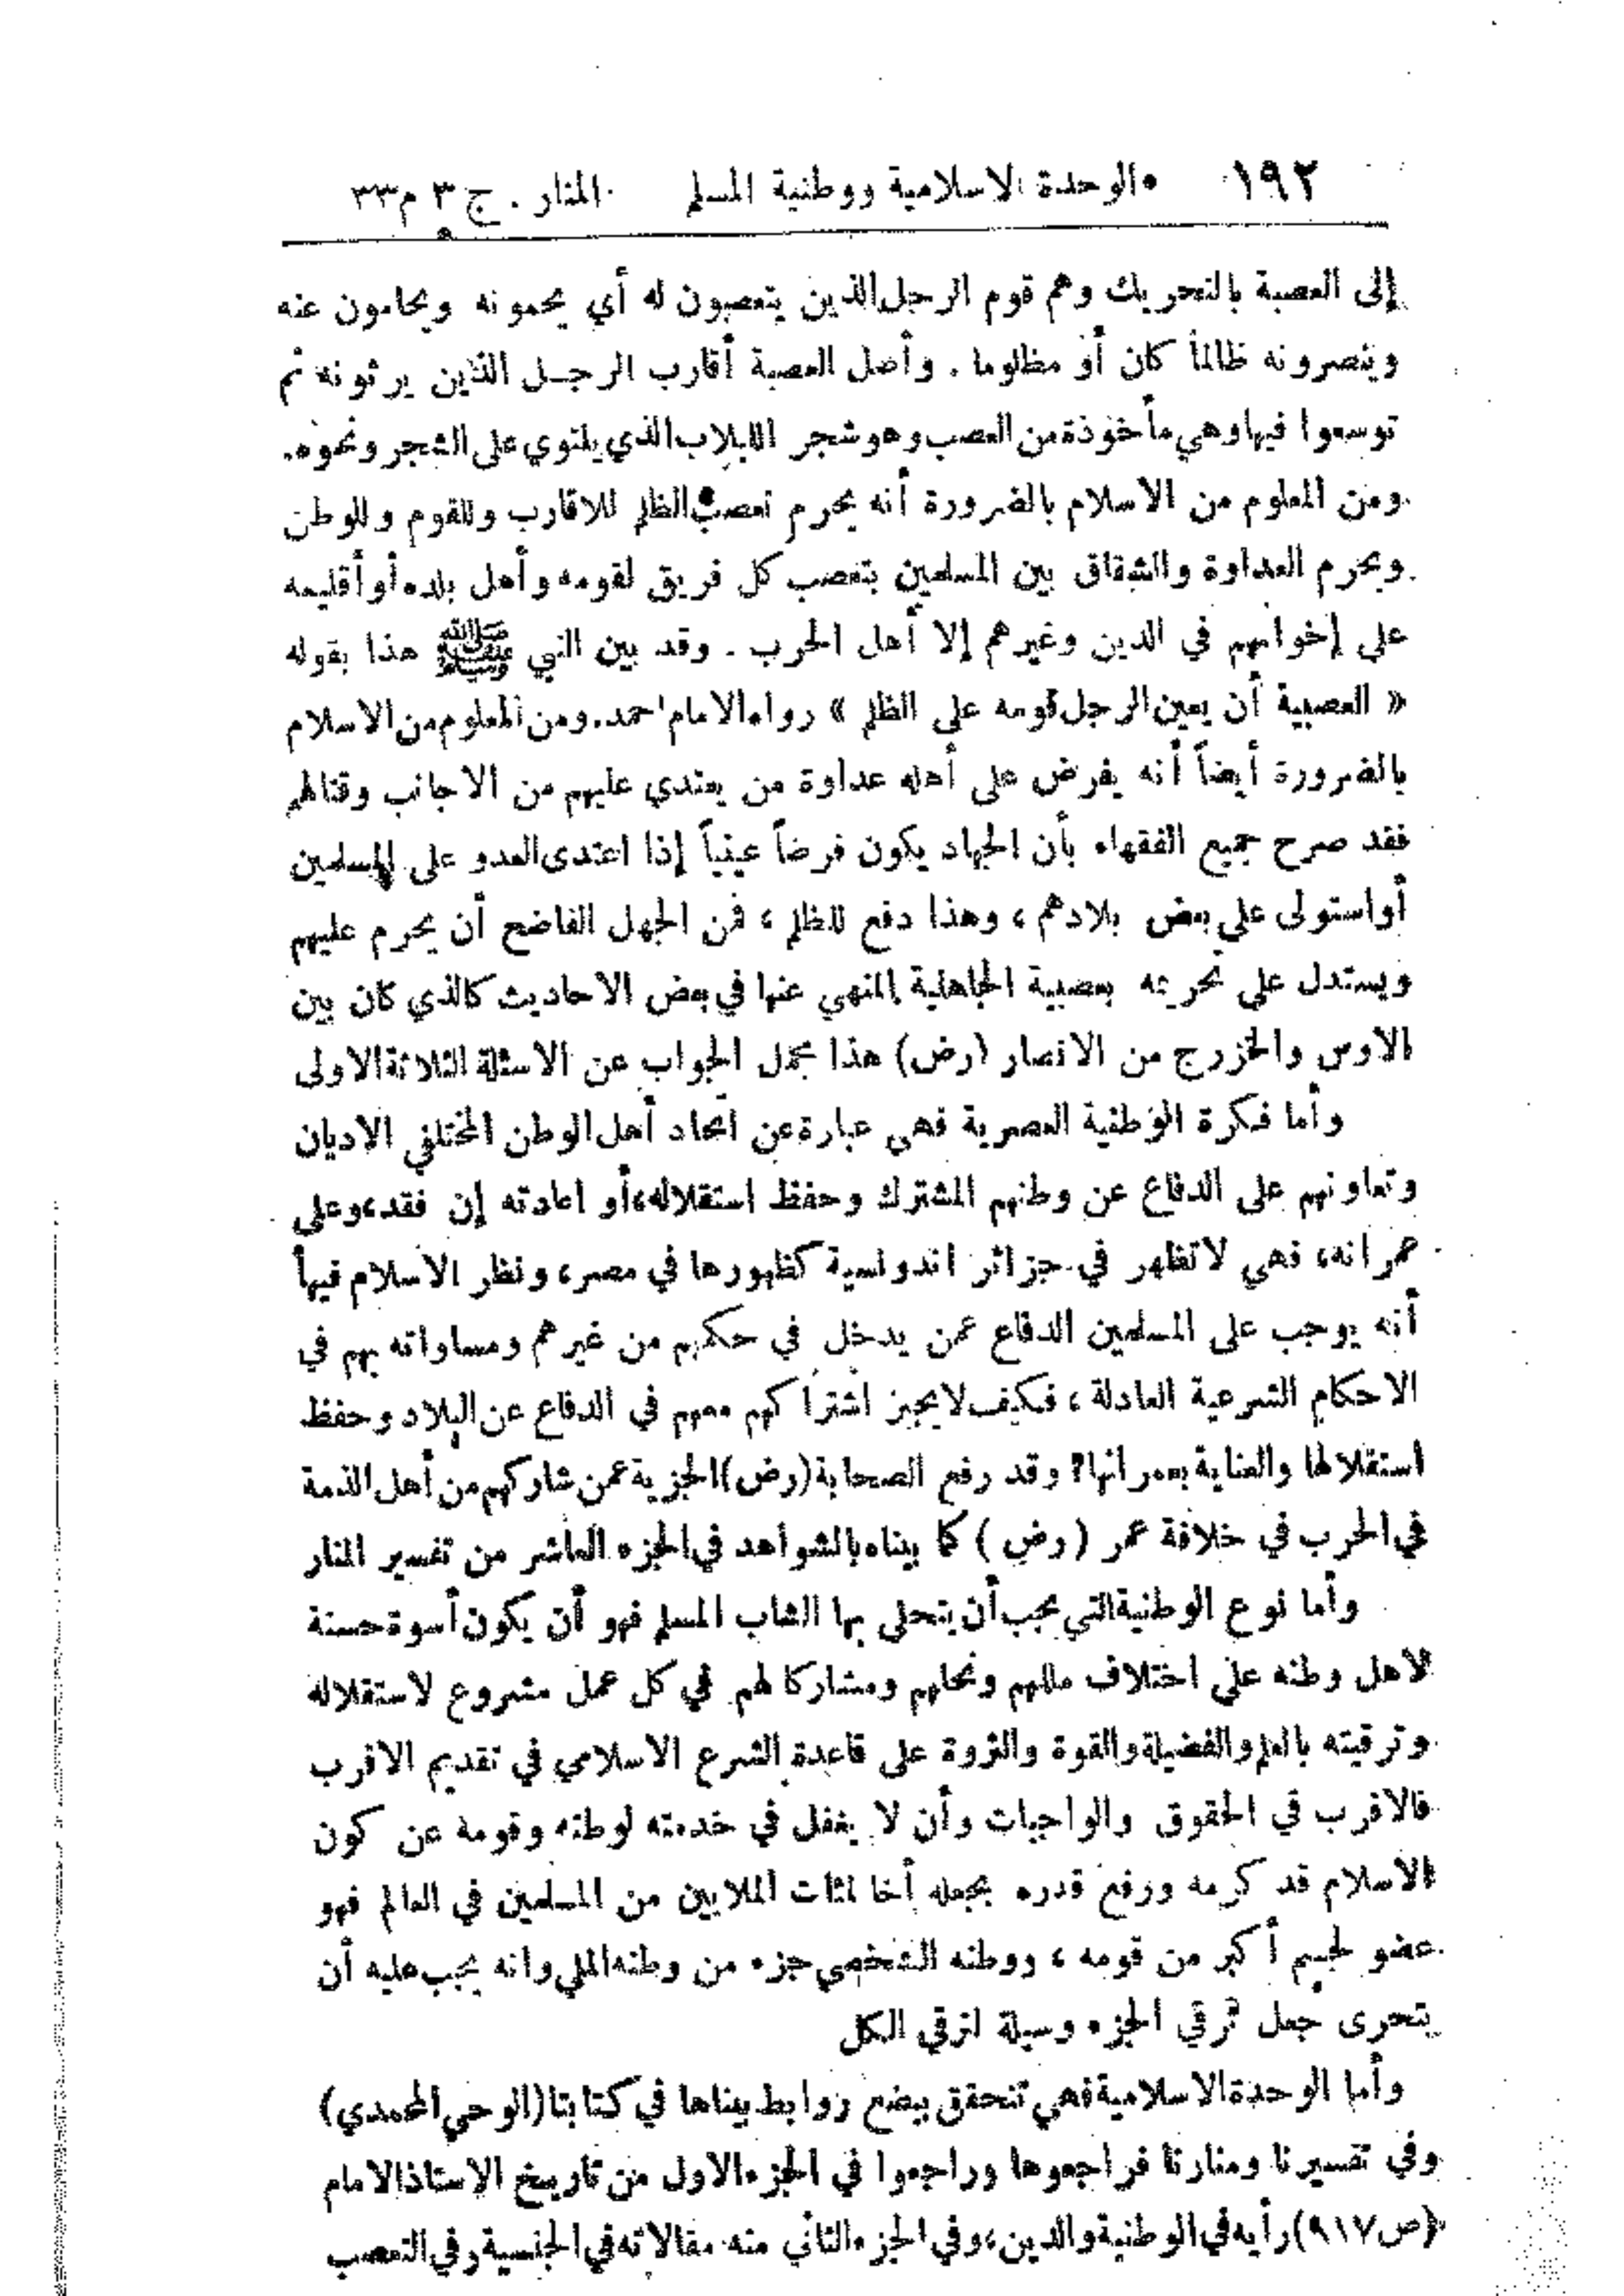 ١٩٢ الوحدة الاسلامية ووطنية المسلم المنار . ج ٣ م ٣٣
إلى العصبة بالتحريك وهم قوم الرجل الذين يتعصبون له أي يحمونه ويحامون عنه
وينصرونه ظالماً كان أو مظلوما . وأصل العصبة أقارب الرجل الذين يرثونه ثم
توسعوا فيها وهي مأخوذة من العصب وهو شجر اللبلاب الذي يلتوي على الشجر ونحوه.
ومن المعلوم من الاسلام بالضرورة أنه يحرم تعصب الظلم للاقارب وللقوم وللوطن
ويحرم العداوة والشقاق بين المسلمين بتعصب كل فريق لقومه وأهل بلده أو أقليمه
على إخوانهم في الدين وغيرهم إلا أهل الحرب . وقد بين النبي ﷺ هذا بقوله
« العصبية أن يعين الرجل قومه على الظلم » رواه الامام احمد. ومن المعلوم من الاسلام
بالضرورة أيضاً أنه يفرض على أهله عداوة من يعتدي عليهم من الاجانب وقتالهم
فقد صرح جميع الفقهاء بأن الجهاد يكون فرضاً عينياً إذا اعتدى العدو على المسلمين
أو استولى على بعض بلادهم ، وهذا دفع للظلم ، فمن الجهل الفاضح أن يحرم عليهم
ويستدل على تحريمه بعصبية الجاهلية المنهي عنها في بعض الاحاديث كالذي كان بين
الاوس والخزرج من الانصار (رض) هذا مجمل الجواب عن الاسئلة الثلاثة الاولى
وأما فكرة الوطنية العصرية فهي عبارة عن اتحاد أهل الوطن المختلفي الاديان
وتعاونهم على الدفاع عن وطنهم المشترك وحفظ استقلاله، أو اعادته إن فقد، وعلى
عمرانه، فهي لا تظهر في جزائر اندونسية كظهورها في مصر، ونظر الاسلام فيها
أنه يوجب على المسلمين الدفاع عمن يدخل في حكمهم من غيرهم ومساواته بهم في
الاحكام الشرعية العادلة ، فكيف لا يجيز اشتراكهم معهم في الدفاع عن البلاد وحفظ
استقلالها والعناية بعمرانها؟ وقد رفع الصحابة (رض) الجزية عمن شاركهم من أهل الذمة
في الحرب في خلافة عمر (رض) كما بيناه بالشواهد في الجزء العاشر من تفسير المنار
وأما نوع الوطنية التي يجب أن يتحلى بها الشاب المسلم فهو أن يكون أسوة حسنة
لاهل وطنه على اختلاف مللهم ونحلهم ومشاركا لهم في كل عمل مشروع لاستقلاله
وترقيته بالعلم والفضيلة والقوة والثروة على قاعدة الشرع الاسلامي في تقديم الاقرب
فالاقرب في الحقوق والواجبات وأن لا يغفل في خدمته لوطنه وقومه عن كون
الاسلام قد كرمه ورفع قدره بجعله أخا لمئات الملايين من المسلمين في العالم فهو
عضو لجسم أكبر من قومه ، ووطنه الشخصي جزء من وطنه الملي وانه يجب عليه أن
يتحرى جعل ترقي الجزء وسيلة لترقي الكل
وأما الوحدة الاسلامية فهي تتحقق ببضع روابط بيناها في كتابنا (الوحي المحمدي)
وفي تفسيرنا ومنارنا فراجعوها وراجعوا في الجزء الاول من تاريخ الاستاذ الامام
(ص ٩١٧) رأيه في الوطنية والدين، وفي الجزء الثاني منه مقالاته في الجنسية وفي التعصب